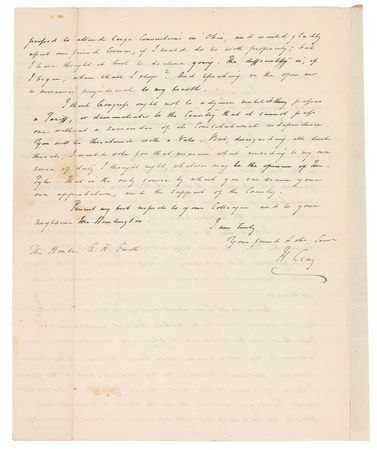 pressed to attend large Conventions in Ohio, and would gladly
our friend Corwin, if I could do so with propriety; but
I have thought it best to decline going. The difficulty is, if
I begin, where shall I stop? And speaking in the open air
is moreover prejudicial to my health.
I think Congress ought not to adjourn until they pass
a Tariff, or demonstrate to the Country that it cannot pass
one without a surrender of its Constitutional independence.
You will be threatened with a Veto. But disregarding all such
threats, I would vote for that measure which according to my own
sense of duty, I thought right, whatever may be the opinion of Mr.
Tyler. That is the only course by which you can secure your
own approbation, and the support of the Country.
Present my best respects to your Colleague and to your
neighbour Mr. Huntington.
I am Truly
Your friend & ob. Serv.
H. Clay
The Honble. Smith